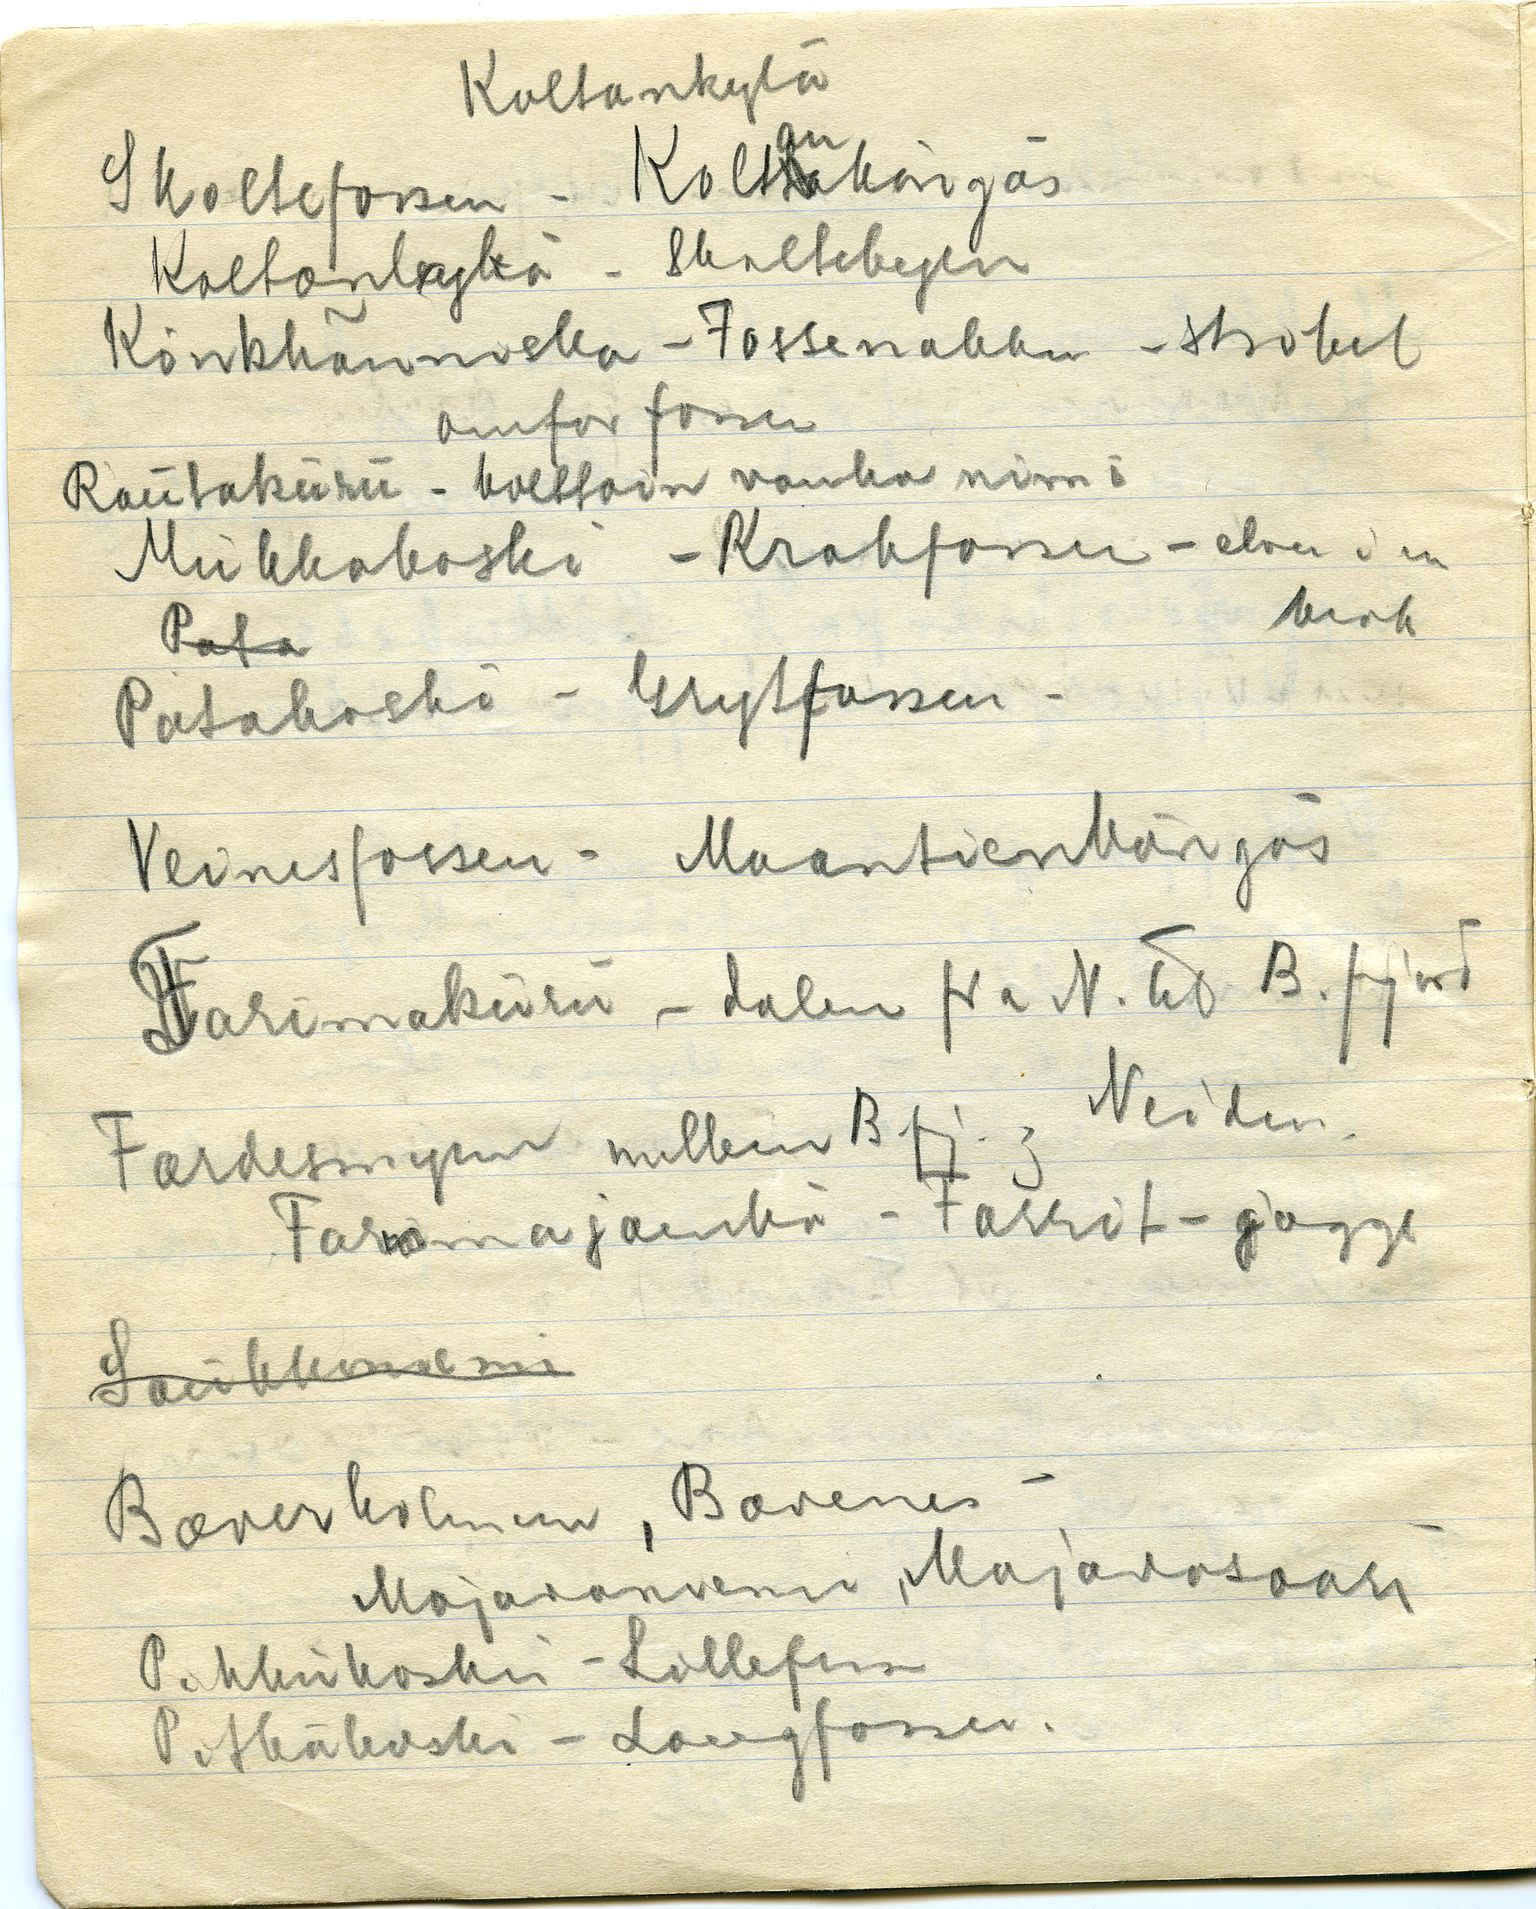 Koltankylä
Skoltefossen - Koltanköngäs
Koltankylä - Skoltebyen
Könkhänniska - Fossenakken - stróket
ovnfor fossen
Raŭtakŭrŭ - kolttain vanha nimi
Mŭkkakoski - Krokfossen - elven i en
krok
Pata
Patakoski - Grytfossen -
Veinesfossen - Maantienköngäs
Farimakŭrŭ - dalen fra N. til B. fjord
Færdesmyren mellem B.fj. og Neiden.
Farimajænkä - Farrit-jægge
Laŭkkuniemi
Bæverholmen, Bævenes -
Majavaniemi, Majavasaari -
Pikkŭkoski - Lillefoss
Pitkäkoski - Langfossen.